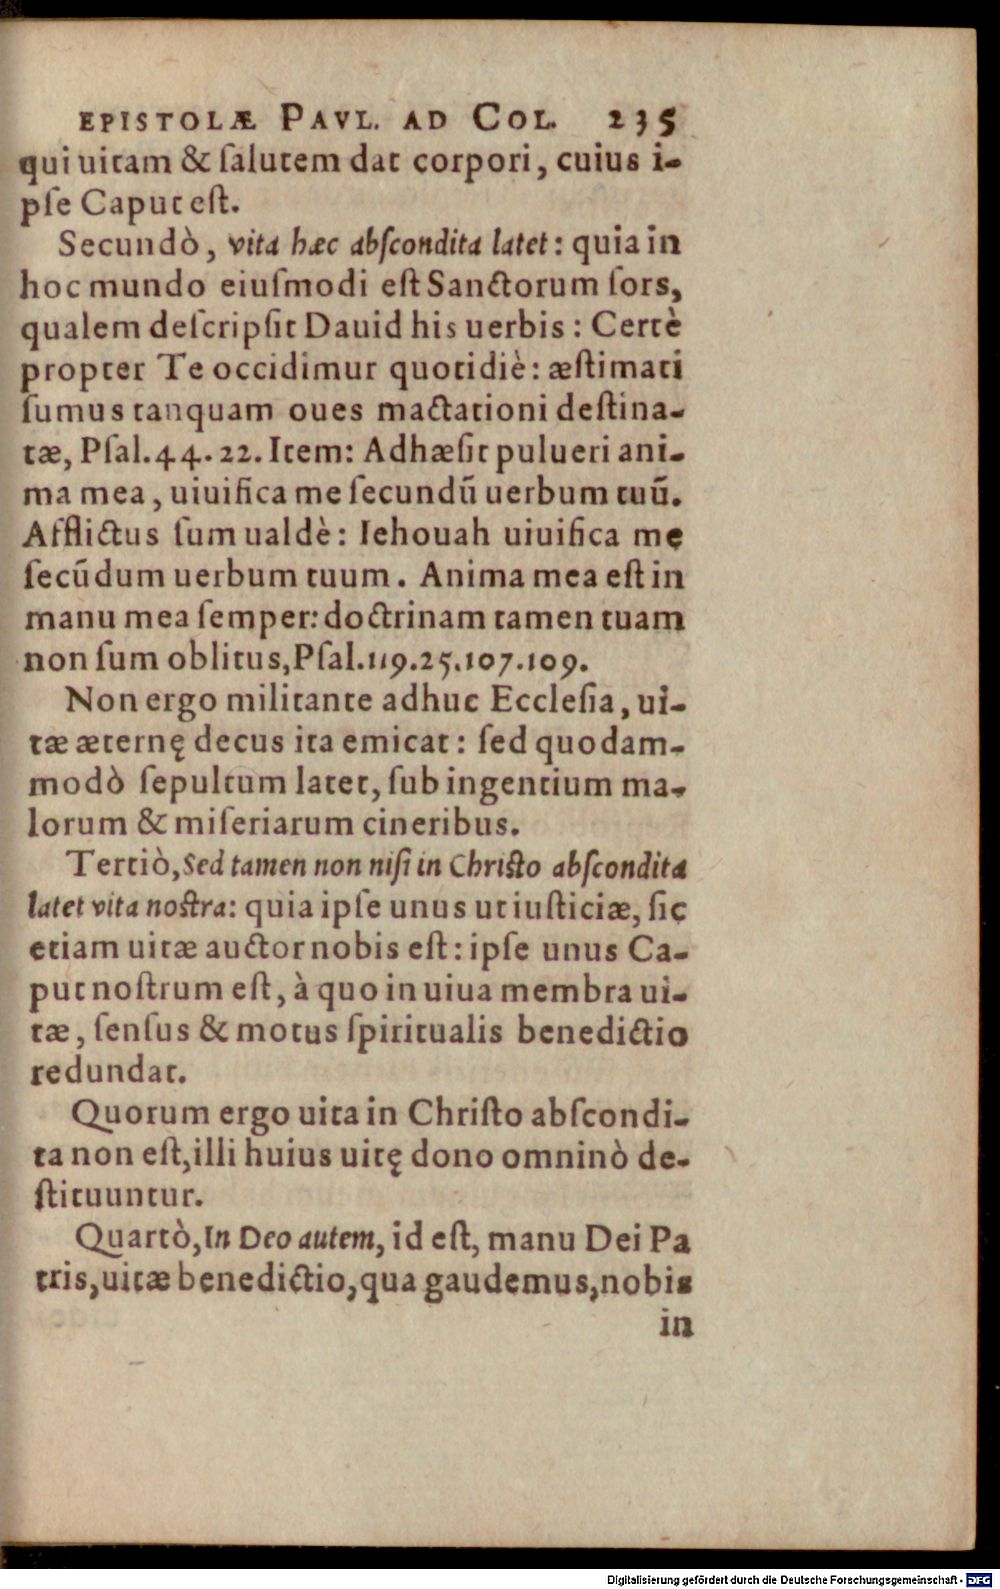 EPISTOLÆ PAVL. AD COL. 235
qui uitam & ſalutem dat corpori, cuius i-
pſe Caput eſt.
Secundò, vita hæc abſcondita latet: quia in
hoc mundo eiuſmodi eſt Sanctorum ſors,
qualem deſcripſit Dauid his uerbis: Certè
propter Te occidimur quotidiè: æſtimati
ſumus tanquam oues mactationi deſtina-
tæ, Pſal.44.22. Item: Adhæſit pulueri ani-
ma mea, uiuifica me ſecundũ uerbum tuũ.
Afflictus ſum ualdè: Iehouah uiuifica me
ſecũdum uerbum tuum. Anima mea eſt in
manu mea ſemper: doctrinam tamen tuam
non ſum oblitus, Pſal.119.25.107.109.
Non ergo militante adhuc Eccleſia, ui-
tæ æternę decus ita emicat: ſed quodam-
modò ſepultum latet, ſub ingentium ma-
lorum & miſeriarum cineribus.
Tertiò, Sed tamen non niſi in Chriſto abſcondita
latet vita noſtra: quia ipſe unus ut iuſticiæ, ſic
etiam uitæ auctor nobis eſt: ipſe unus Ca-
put noſtrum eſt, à quo in uiua membra ui-
tæ, ſenſus & motus ſpiritualis benedictio
redundat.
Quorum ergo uita in Chriſto abſcondi-
ta non eſt, illi huius uitę dono omninò de-
ſtituuntur.
Quartò, In Deo autem, id eſt, manu Dei Pa
tris, uitæ benedictio, qua gaudemus, nobis
in
Digitalisierung gefördert durch die Deutsche Forschungsgemeinschaft - DFG